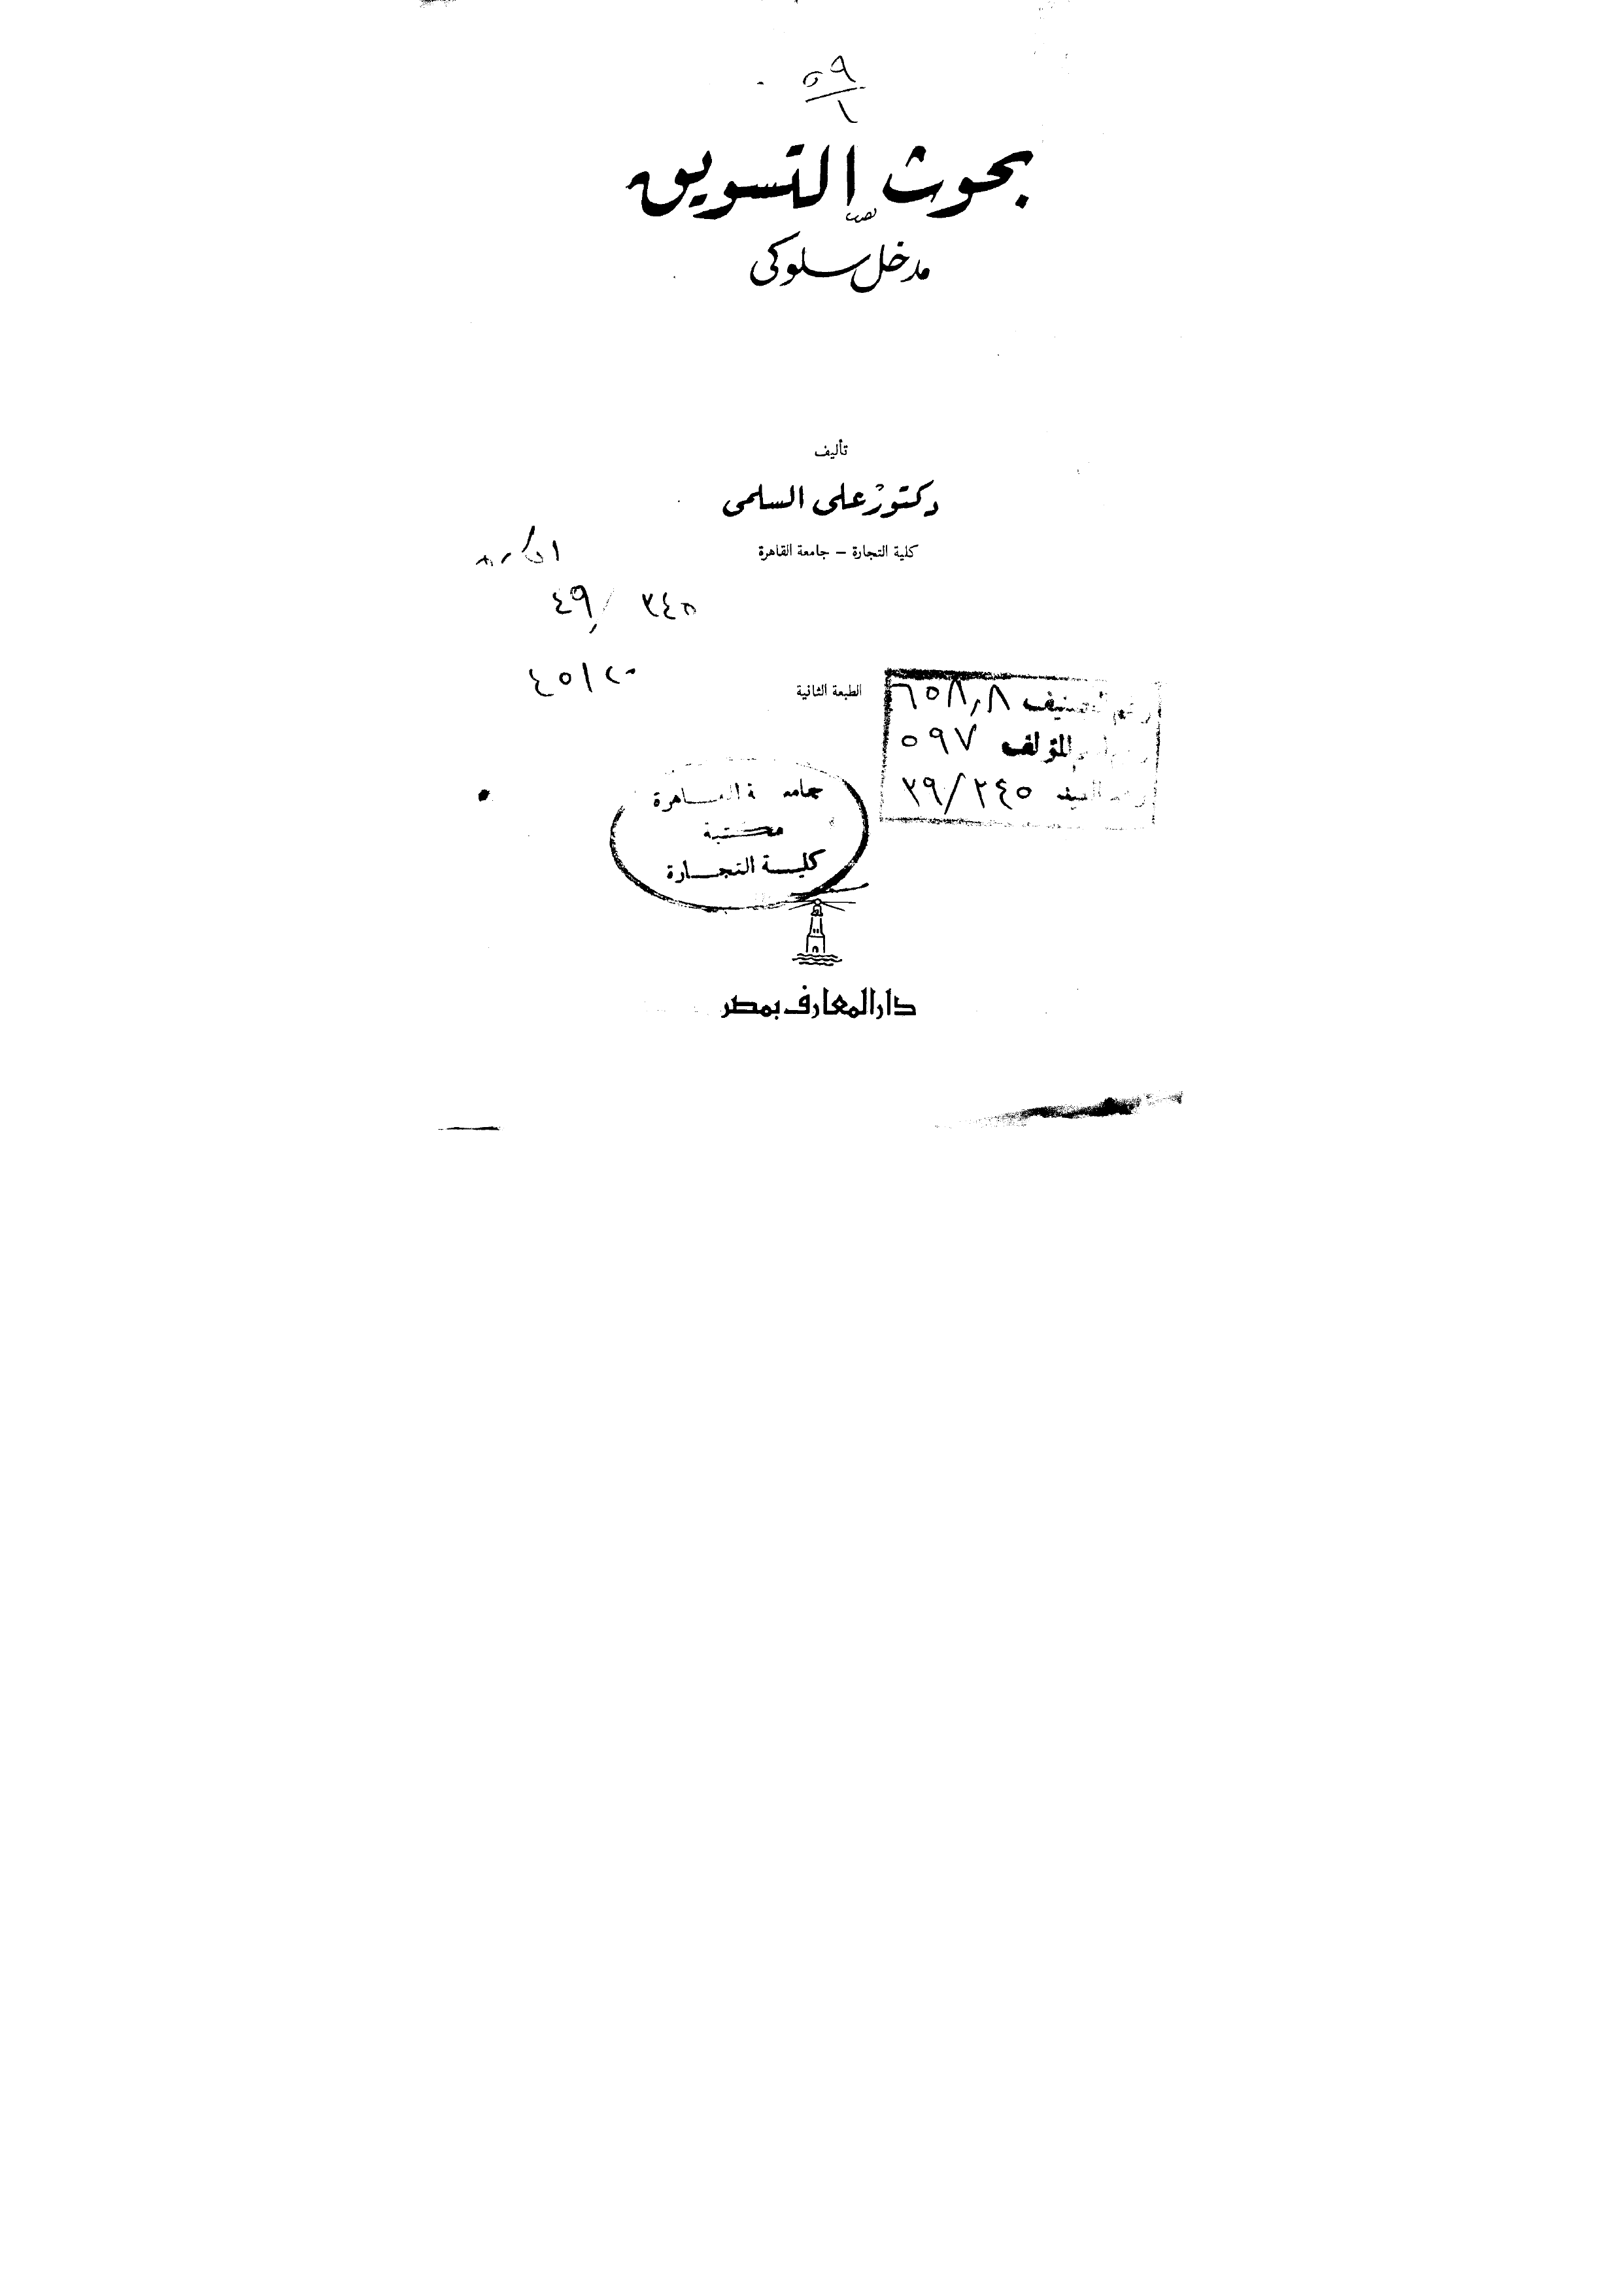 ٥٩
١
بحوث التسويق
مدخل سلوكى
تأليف
دكتور على السلمى
كلية التجارة – جامعة القاهرة
٣٤٥ / ٤٩
الطبعة الثانية
رقم التصنيف ٦٥٨,٨
المؤلف ٥٩٧
رقم القيد ٢٤٥/٣٩
جامعة القاهرة
مكتبة
كلية التجارة
دار المعارف بمصر